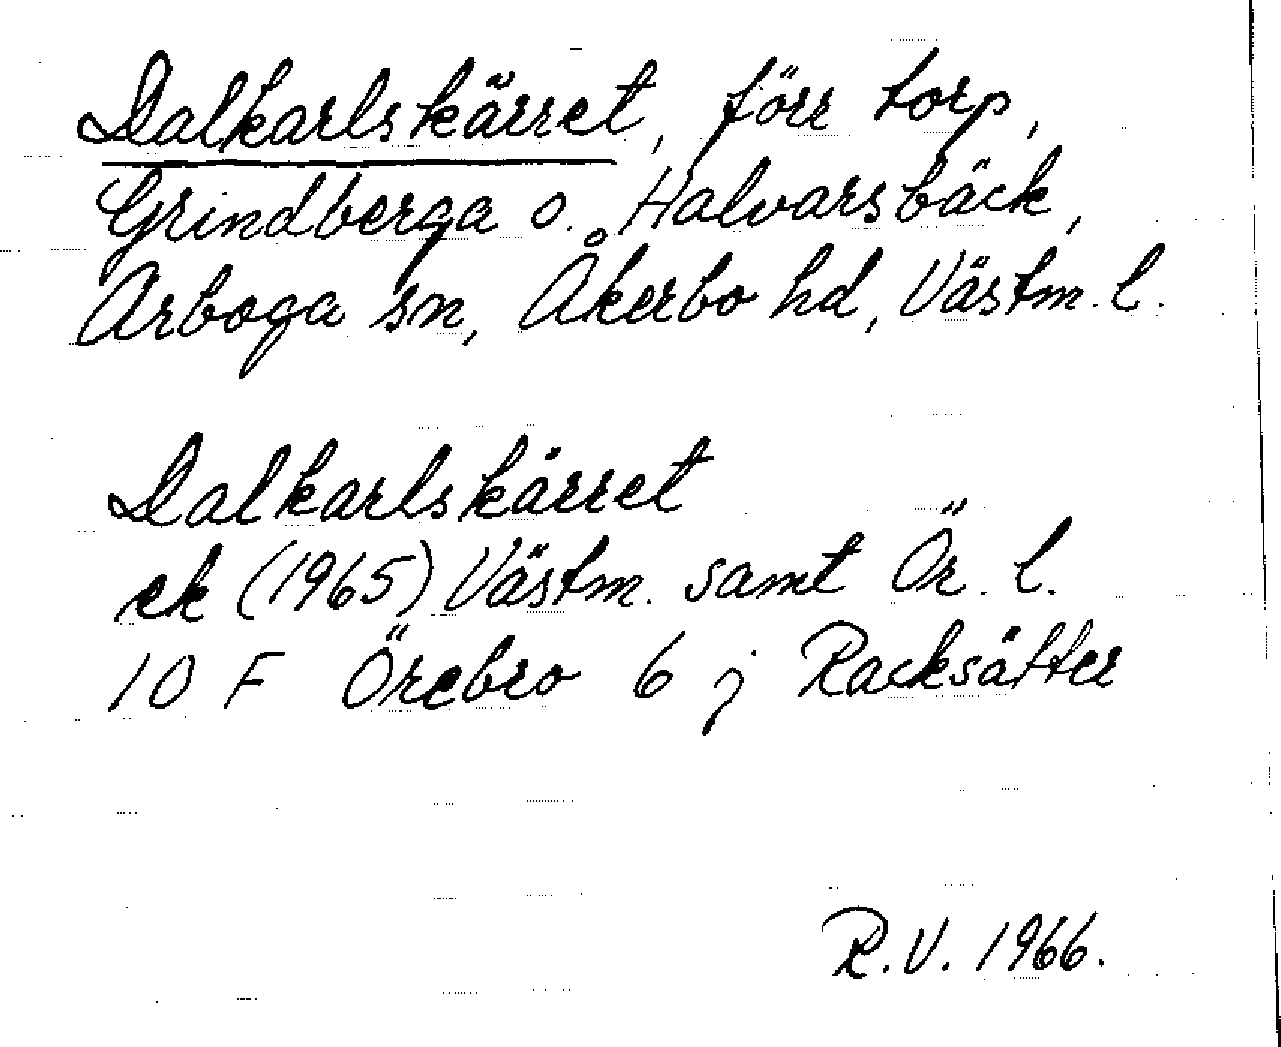 Dalkarlskärret, förr torp,
Grindberga o. Halvarsbäck,
Arboga sn, Åkerbo hd, Västm. l.
Dalkarlskärret
ek (1965) Västm. samt Ör. l.
10 F Örebro 6 j Racksätter
R.V. 1966.